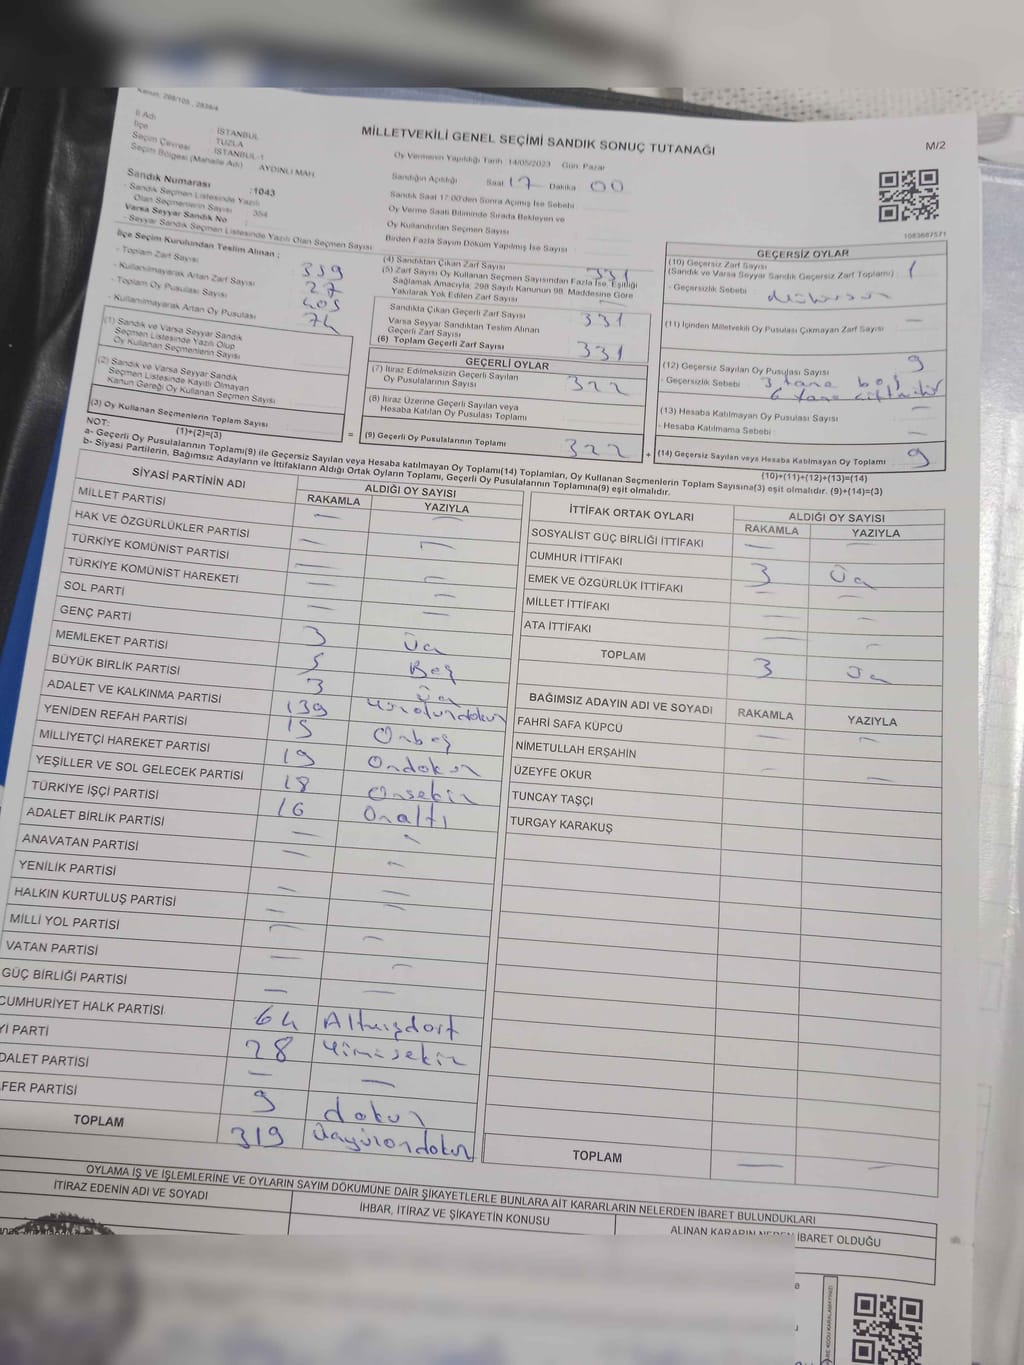 Kanun: 298/105 , 2839/4
İl Adı : İSTANBUL
İlçe : TUZLA
Seçim Çevresi : İSTANBUL-1
Seçim Bölgesi (Mahalle Adı) : AYDINLI MAH.
Sandık Numarası :1043
- Sandık Seçmen Listesinde Yazılı
Olan Seçmenlerin Sayısı : 354
Varsa Seyyar Sandık No :
- Seyyar Sandık Seçmen Listesinde Yazılı Olan Seçmen Sayısı
MİLLETVEKİLİ GENEL SEÇİMİ SANDIK SONUÇ TUTANAĞI
M/2
Oy Vermenin Yapıldığı Tarih 14/05/2023 Gün Pazar
Sandığın Açıldığı Saat 17 Dakika 00
Sandık Saat 17:00'den Sonra Açılmış İse Sebebi
Oy Verme Saati Bitiminde Sırada Bekleyen ve
Oy Kullandırılan Seçmen Sayısı
Birden Fazla Sayım Döküm Yapılmış İse Sayısı
1083687571
İlçe Seçim Kurulundan Teslim Alınan ;
- Toplam Zarf Sayısı 359
- Kullanılmayarak Artan Zarf Sayısı 27
- Toplam Oy Pusulası Sayısı 405
- Kullanılmayarak Artan Oy Pusulası 74
(1) Sandık ve Varsa Seyyar Sandık
Seçmen Listesinde Yazılı Olup
Oy Kullanan Seçmenlerin Sayısı
(2) Sandık ve Varsa Seyyar Sandık
Seçmen Listesinde Kayıtlı Olmayan
Kanun Gereği Oy Kullanan Seçmen Sayısı
(3) Oy Kullanan Seçmenlerin Toplam Sayısı
(1)+(2)=(3)
(4) Sandıktan Çıkan Zarf Sayısı 331
(5) Zarf Sayısı Oy Kullanan Seçmen Sayısından Fazla İse, Eşitliği
Sağlamak Amacıyla, 298 Sayılı Kanunun 98. Maddesine Göre
Yakılarak Yok Edilen Zarf Sayısı
Sandıkta Çıkan Geçerli Zarf Sayısı 331
Varsa Seyyar Sandıktan Teslim Alınan
Geçerli Zarf Sayısı
(6) Toplam Geçerli Zarf Sayısı 331
GEÇERLİ OYLAR
(7) İtiraz Edilmeksizin Geçerli Sayılan
Oy Pusulalarının Sayısı 322
(8) İtiraz Üzerine Geçerli Sayılan veya
Hesaba Katılan Oy Pusulası Toplamı
= (9) Geçerli Oy Pusulalarının Toplamı 322 +
GEÇERSİZ OYLAR
(10) Geçersiz Zarf Sayısı
(Sandık ve Varsa Seyyar Sandık Geçersiz Zarf Toplamı) 1
- Geçersizlik Sebebi
(11) İçinden Milletvekili Oy Pusulası Çıkmayan Zarf Sayısı —
(12) Geçersiz Sayılan Oy Pusulası Sayısı 9
- Geçersizlik Sebebi 3 tane boş
6 tane
(13) Hesaba Katılmayan Oy Pusulası Sayısı —
- Hesaba Katılmama Sebebi —
(14) Geçersiz Sayılan veya Hesaba Katılmayan Oy Toplamı 9
(10)+(11)+(12)+(13)=(14)
NOT:
a- Geçerli Oy Pusulalarının Toplamı(9) ile Geçersiz Sayılan veya Hesaba katılmayan Oy Toplamı(14) Toplamları, Oy Kullanan Seçmenlerin Toplam Sayısına(3) eşit olmalıdır. (9)+(14)=(3)
b- Siyasi Partilerin, Bağımsız Adayların ve İttifakların Aldığı Ortak Oyların Toplamı, Geçerli Oy Pusulalarının Toplamına(9) eşit olmalıdır.
SİYASİ PARTİNİN ADI ALDIĞI OY SAYISI
RAKAMLA YAZIYLA
MİLLET PARTİSİ — —
HAK VE ÖZGÜRLÜKLER PARTİSİ — —
TÜRKİYE KOMÜNİST PARTİSİ — —
TÜRKİYE KOMÜNİST HAREKETİ — —
SOL PARTİ — —
GENÇ PARTİ — —
MEMLEKET PARTİSİ 3 Üç
BÜYÜK BİRLİK PARTİSİ 5 Beş
ADALET VE KALKINMA PARTİSİ 3 Üç
YENİDEN REFAH PARTİSİ 139 Yüzotuzdokuz
MİLLİYETÇİ HAREKET PARTİSİ 15 Onbeş
YEŞİLLER VE SOL GELECEK PARTİSİ 19 Ondokuz
TÜRKİYE İŞÇİ PARTİSİ 18 Onsekiz
ADALET BİRLİK PARTİSİ 16 Onaltı
ANAVATAN PARTİSİ — —
YENİLİK PARTİSİ — —
HALKIN KURTULUŞ PARTİSİ — —
MİLLİ YOL PARTİSİ — —
VATAN PARTİSİ — —
GÜÇ BİRLİĞİ PARTİSİ — —
CUMHURİYET HALK PARTİSİ 64 Altmışdört
Yİ PARTİ 28 Yirmisekiz
DALET PARTİSİ — —
FER PARTİSİ 9 dokuz
TOPLAM 319 Üçyüzondokuz
İTTİFAK ORTAK OYLARI ALDIĞI OY SAYISI
RAKAMLA YAZIYLA
SOSYALİST GÜÇ BİRLİĞİ İTTİFAKI — —
CUMHUR İTTİFAKI 3 Üç
EMEK VE ÖZGÜRLÜK İTTİFAKI — —
MİLLET İTTİFAKI — —
ATA İTTİFAKI — —
TOPLAM 3 Üç
BAĞIMSIZ ADAYIN ADI VE SOYADI RAKAMLA YAZIYLA
FAHRİ SAFA KÜPCÜ — —
NİMETULLAH ERŞAHİN — —
ÜZEYFE OKUR
TUNCAY TAŞÇI
TURGAY KARAKUŞ
TOPLAM — —
OYLAMA İŞ VE İŞLEMLERİNE VE OYLARIN SAYIM DÖKÜMÜNE DAİR ŞİKAYETLERLE BUNLARA AİT KARARLARIN NELERDEN İBARET BULUNDUKLARI
İTİRAZ EDENİN ADI VE SOYADI İHBAR, İTİRAZ VE ŞİKAYETİN KONUSU ALINAN KARARIN NEDEN İBARET OLDUĞU